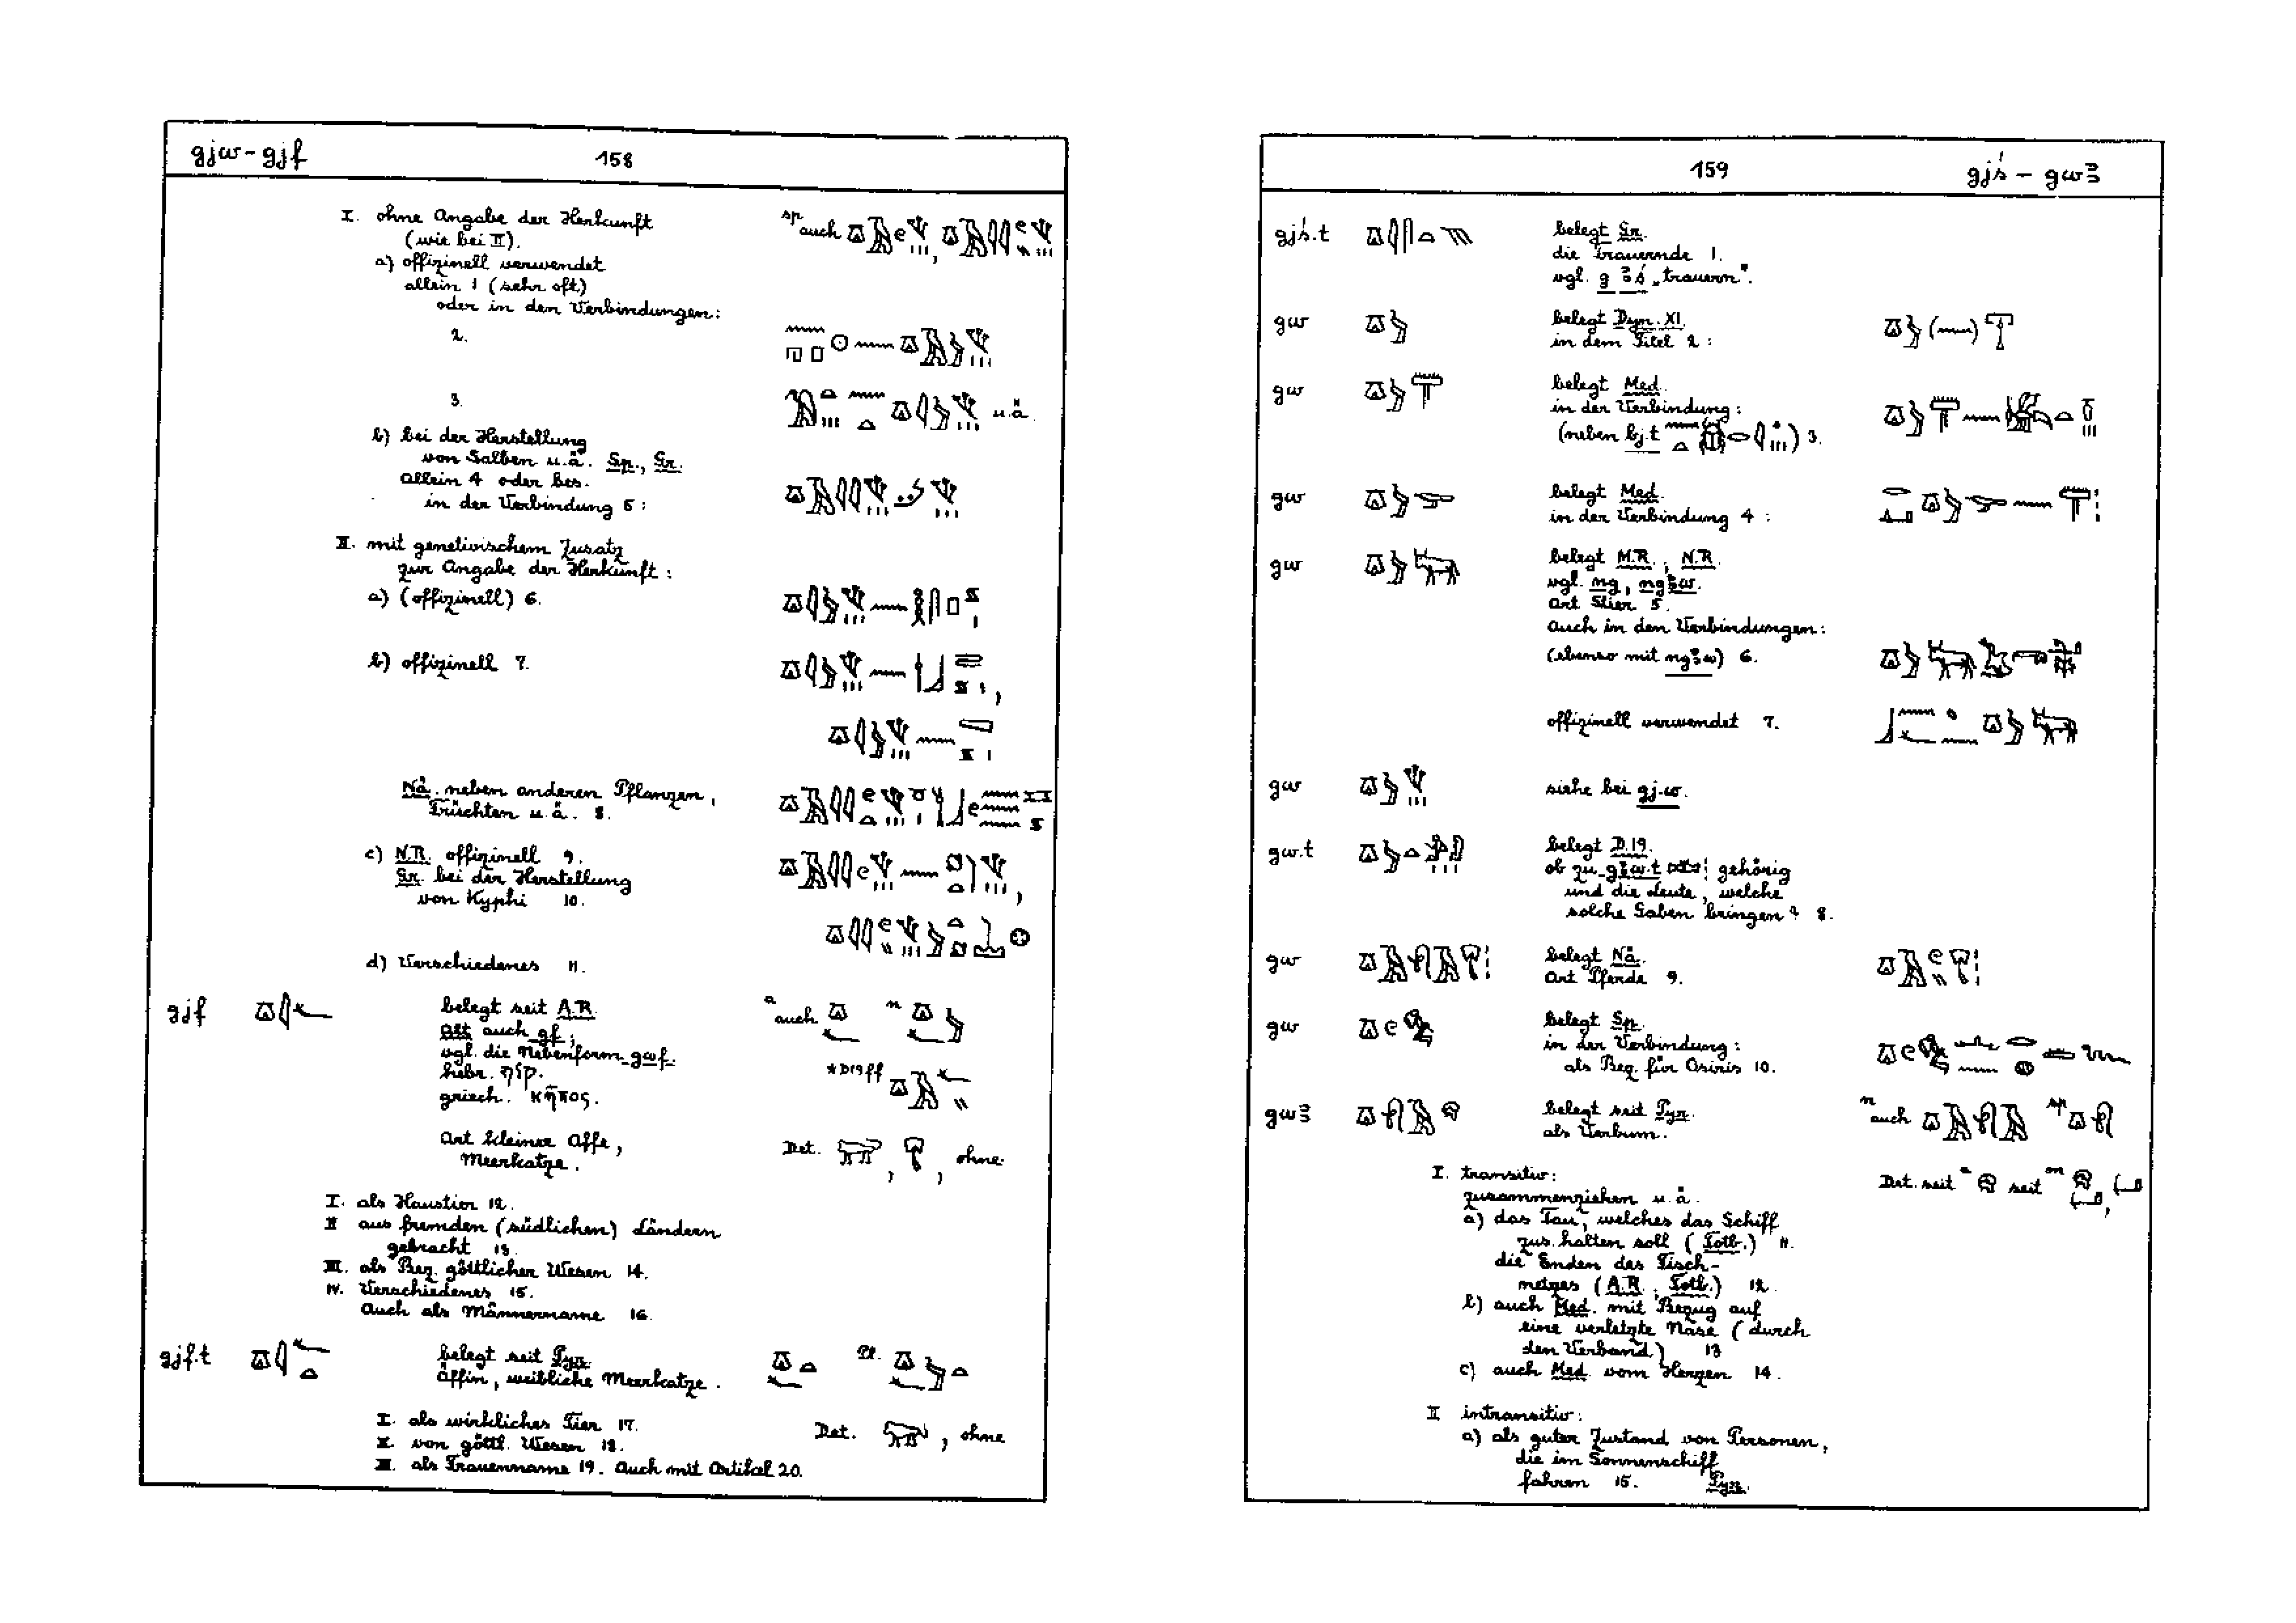 gjw - gjf 158
I. ohne Angabe der Herkunft
(wie bei II).
sp auch
a) offizinell verwendet
allein 1 (sehr oft)
oder in den Verbindungen:
2.
3. u.ä.
b) bei der Herstellung
von Salben u.ä. Sp., Gr.
allein 4 oder bes.
in der Verbindung 5:
II. mit genetivischem Zusatz
zur Angabe der Herkunft:
a) (offizinell) 6.
b) offizinell 7.
Nä. neben anderen Pflanzen,
Früchten u.ä. 8.
c) N.R. offizinell 9.
Gr. bei der Herstellung
von Kyphi 10.
d) Verschiedenes 11.
gjf belegt seit A.R. a auch n
Alt auch gf;
vgl. die Nebenform gwf.
hebr. קוף. *D19ff
griech. κῆπος.
Art kleiner Affe, Det. , , ohne
Meerkatze.
I. als Haustier 12.
II aus fremden (südlichen) Ländern
gebracht 13.
III. als Bez. göttlicher Wesen 14.
IV. Verschiedenes 15.
Auch als Männername 16.
gjf.t belegt seit Pyr. Pl.
Äffin, weibliche Meerkatze.
I. als wirkliches Tier 17. Det. , ohne
II. von göttl. Wesen 18.
III. als Frauenname 19. Auch mit Artikel 20.
159 gjś - gwꜣ
gjś.t belegt Gr.
die Trauernde 1.
vgl. gꜣś „trauern".
gw belegt Dyn. XI.
in dem Titel 2:
gw belegt Med.
in der Verbindung:
(neben bj.t ) 3.
gw belegt Med.
in der Verbindung 4:
gw belegt M.R., N.R.
vgl. ng, ngꜣw.
Art Stier 5.
Auch in den Verbindungen:
(ebenso mit ngꜣw) 6.
offizinell verwendet 7.
gw siehe bei gj.w.
gw.t belegt D.19.
ob zu gꜣw.t gehörig
und die Leute, welche
solche Gaben bringen? 8.
gw belegt Nä.
Art Pferde 9.
gw belegt Sp.
in der Verbindung:
als Bez. für Osiris 10.
gwꜣ belegt seit Pyr. n auch sp
als Verbum.
I. transitiv: Det. seit a seit m ,
zusammenziehen u.ä.
a) das Tau, welches das Schiff
zus.halten soll (Totb.) 11.
die Enden des Fisch-
netzes (A.R., Totb.) 12.
b) auch Med. mit Bezug auf
eine verletzte Nase (durch
den Verband) 13
c) auch Med. vom Herzen 14.
II intransitiv:
a) als guter Zustand von Personen,
die im Sonnenschiff
fahren 15. Pyr.